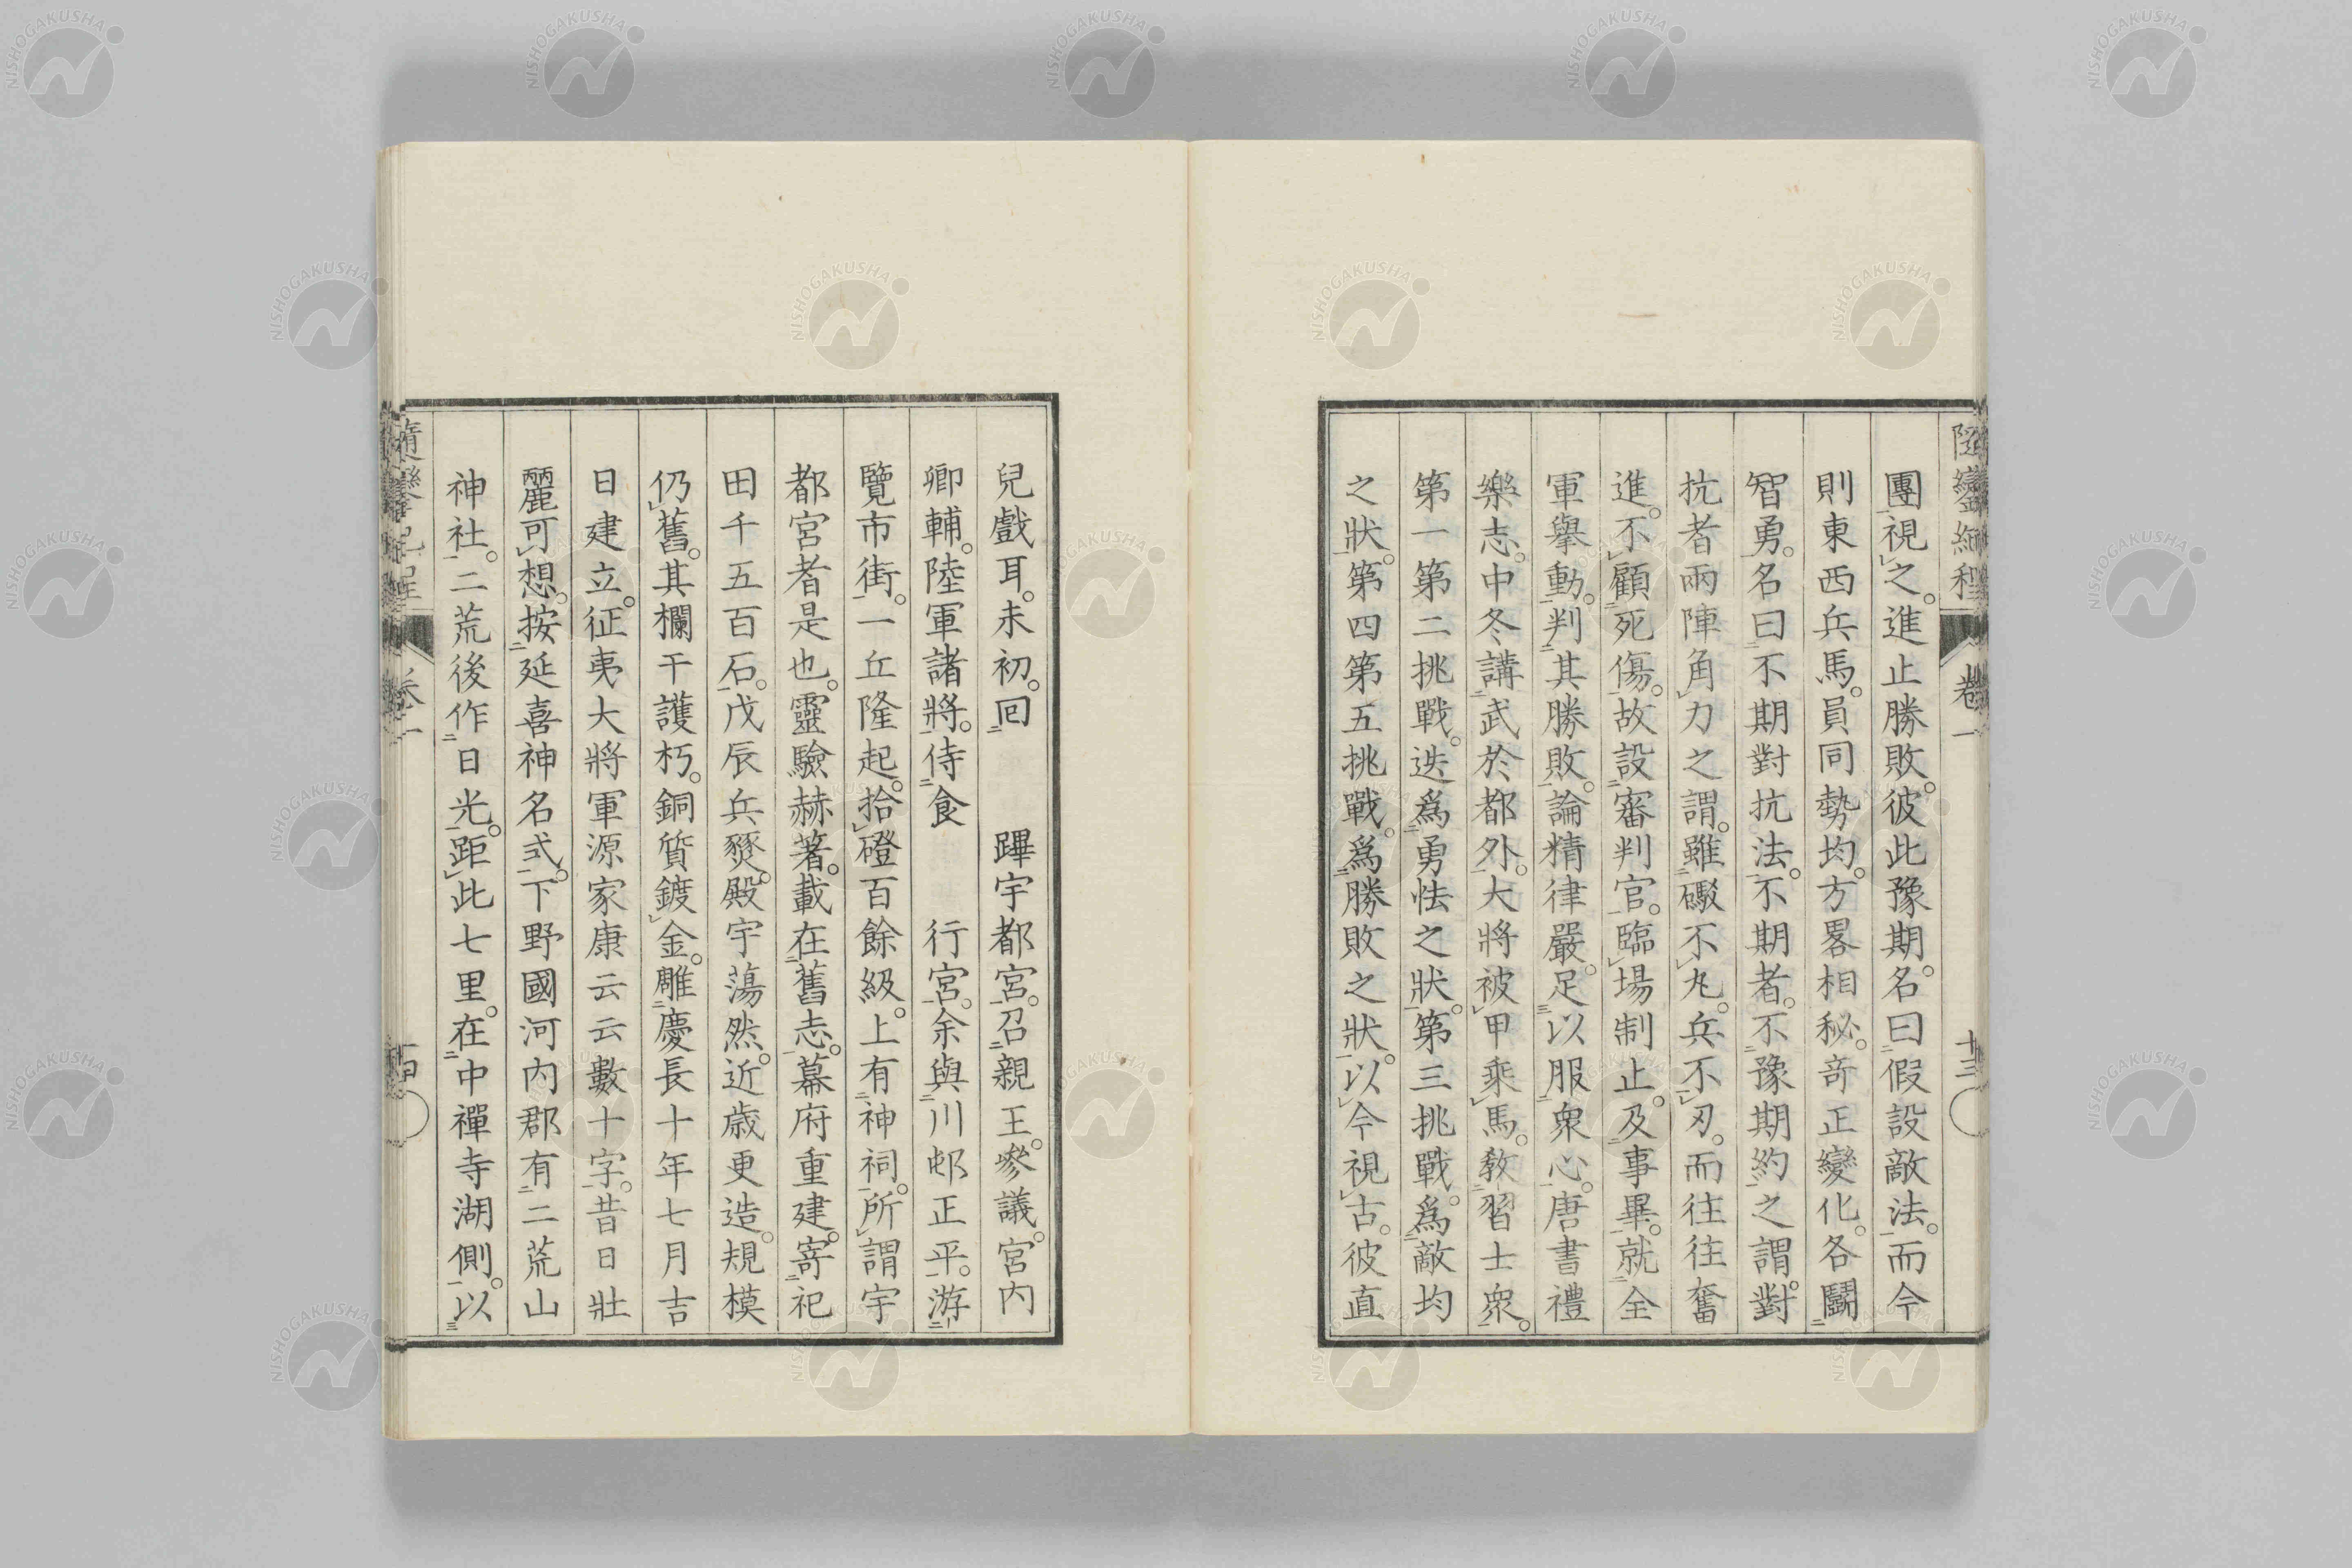 隨鑾紀程　卷一　十三
團視之。進止勝敗。彼此豫期。名曰假設敵法。而今
則東西兵馬。員同勢均。方畧相秘。奇正變化。各鬪
智勇。名曰不期對抗法。不期者。不豫期約之謂。對
抗者兩陣角力之謂。雖礮不丸。兵不刃。而往往奮
進。不顧死傷。故設審判官。臨場制止。及事畢。就全
軍擧動。判其勝敗。論精律嚴。足以服衆心。唐書禮
樂志。中冬講武於都外。大將被甲乘馬。敎習士衆。
第一第二挑戰。迭爲勇怯之狀。第三挑戰。爲敵均
之狀。第四第五挑戰。爲勝敗之狀。以今視古。彼直
兒戲耳。未初。囘　蹕宇都宮。召親王。參議。宮內
卿輔。陸軍諸將。侍食　行宮。余與川邨正平。游
覽市街。一丘隆起。拾磴百餘級。上有神祠。所謂宇
都宮者是也。靈驗赫著。載在舊志。幕府重建。寄祀
田千五百石。戊辰兵燹。殿宇蕩然。近歲更造。規模
仍舊。其欄干護朽。銅質鍍金。雕慶長十年七月吉
日建立。征夷大將軍源家康云云數十字。昔日壯
麗可想。按延喜神名式。下野國河內郡有二荒山
神社。二荒後作日光。距此七里。在中禪寺湖側。以
隨鑾紀程　卷一　十四
NISHOGAKUSHA